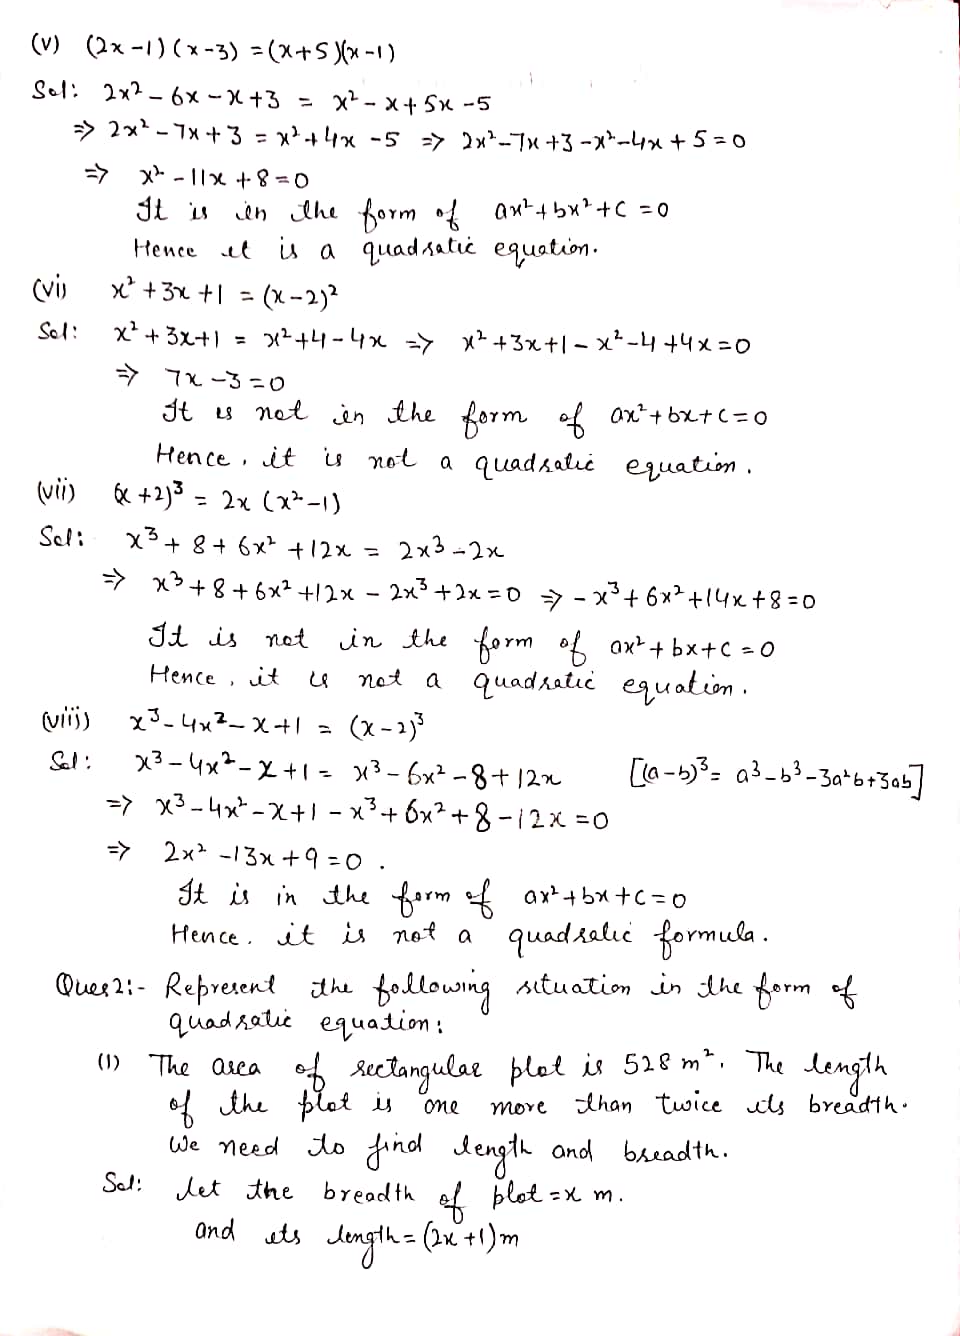 (v) (2x-1)(x-3) = (x+5)(x-1)
Sol: 2x² - 6x - x + 3 = x² - x + 5x - 5
⇒ 2x² - 7x + 3 = x² + 4x - 5 ⇒ 2x² - 7x + 3 - x² - 4x + 5 = 0
⇒ x² - 11x + 8 = 0
It is in the form of ax² + bx² + c = 0
Hence it is a quadratic equation.
(vi) x² + 3x + 1 = (x-2)²
Sol: x² + 3x + 1 = x² + 4 - 4x ⇒ x² + 3x + 1 - x² - 4 + 4x = 0
⇒ 7x - 3 = 0
It is not in the form of ax² + bx + c = 0
Hence, it is not a quadratic equation.
(vii) (x+2)³ = 2x (x²-1)
Sol: x³ + 8 + 6x² + 12x = 2x³ - 2x
⇒ x³ + 8 + 6x² + 12x - 2x³ + 2x = 0 ⇒ -x³ + 6x² + 14x + 8 = 0
It is not in the form of ax² + bx + c = 0
Hence, it is not a quadratic equation.
(viii) x³ - 4x² - x + 1 = (x-2)³
Sol: x³ - 4x² - x + 1 = x³ - 6x² - 8 + 12x [(a-b)³ = a³ - b³ - 3a²b + 3ab]
⇒ x³ - 4x² - x + 1 - x³ + 6x² + 8 - 12x = 0
⇒ 2x² - 13x + 9 = 0.
It is in the form of ax² + bx + c = 0
Hence, it is not a quadratic formula.
Ques 2:- Represent the following situation in the form of
quadratic equation:
(1) The area of rectangular plot is 528 m². The length
of the plot is one more than twice its breadth.
We need to find length and breadth.
Sol: let the breadth of plot = x m.
and its length = (2x+1)m